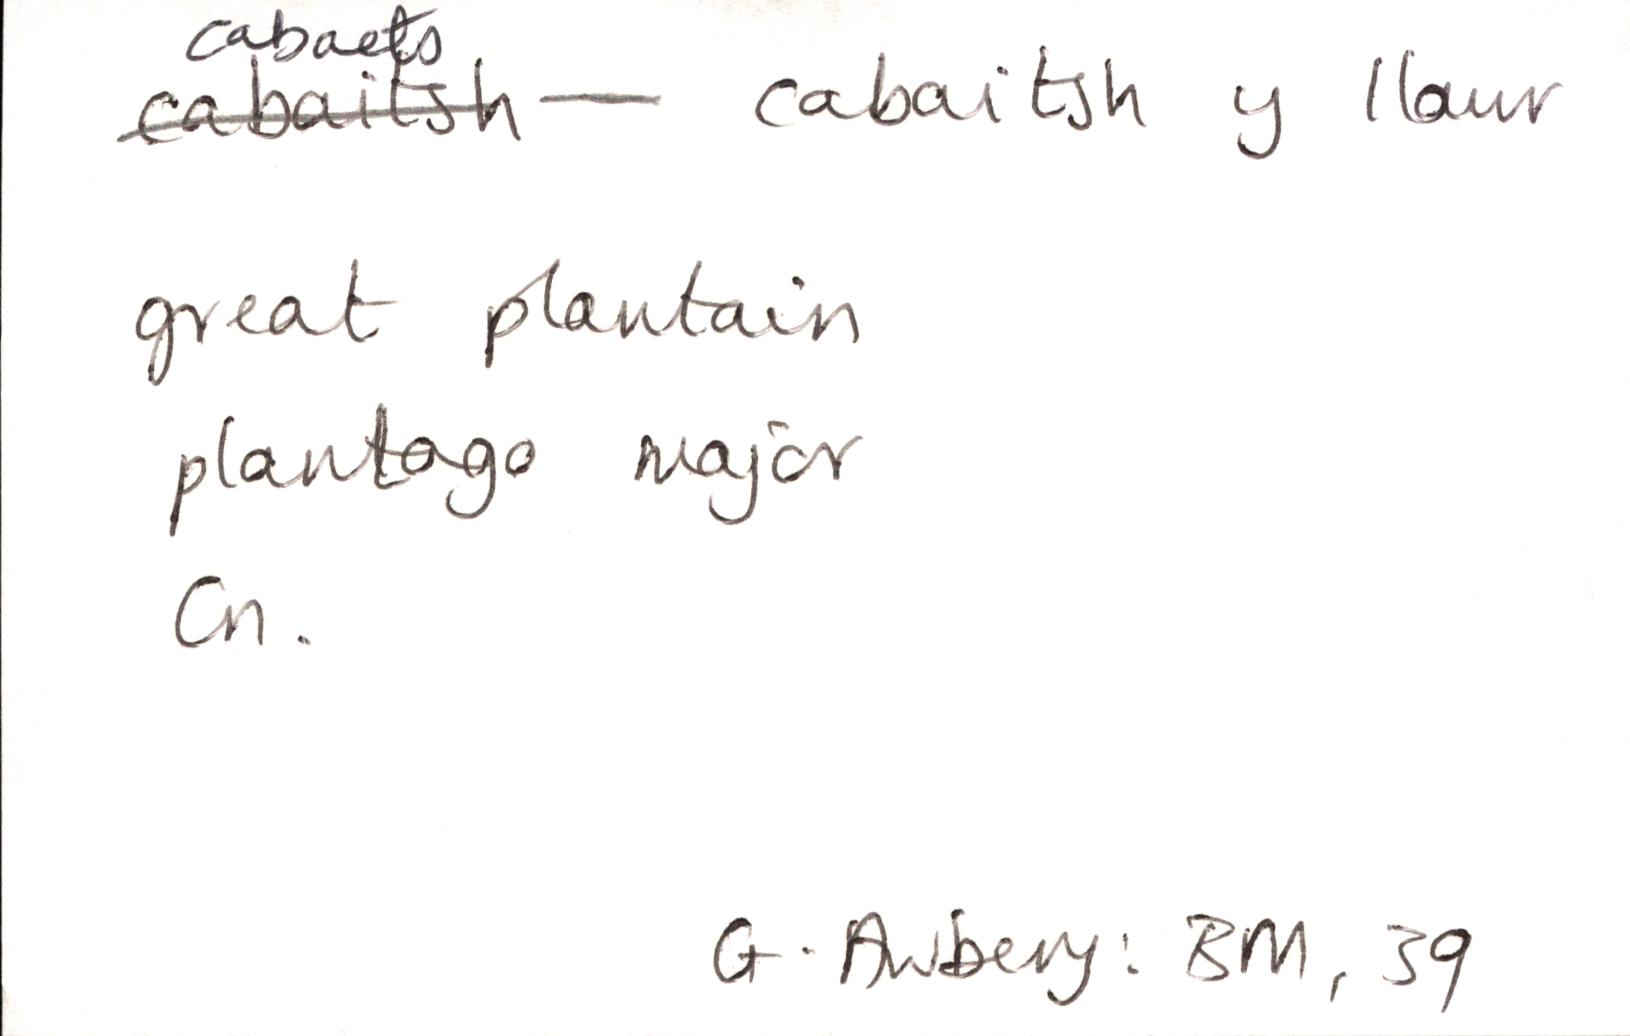 cabaets
cabaitsh — cabaitsh y llawr
great plantain
plantago major
Cn.
G. Awbery: BM, 39